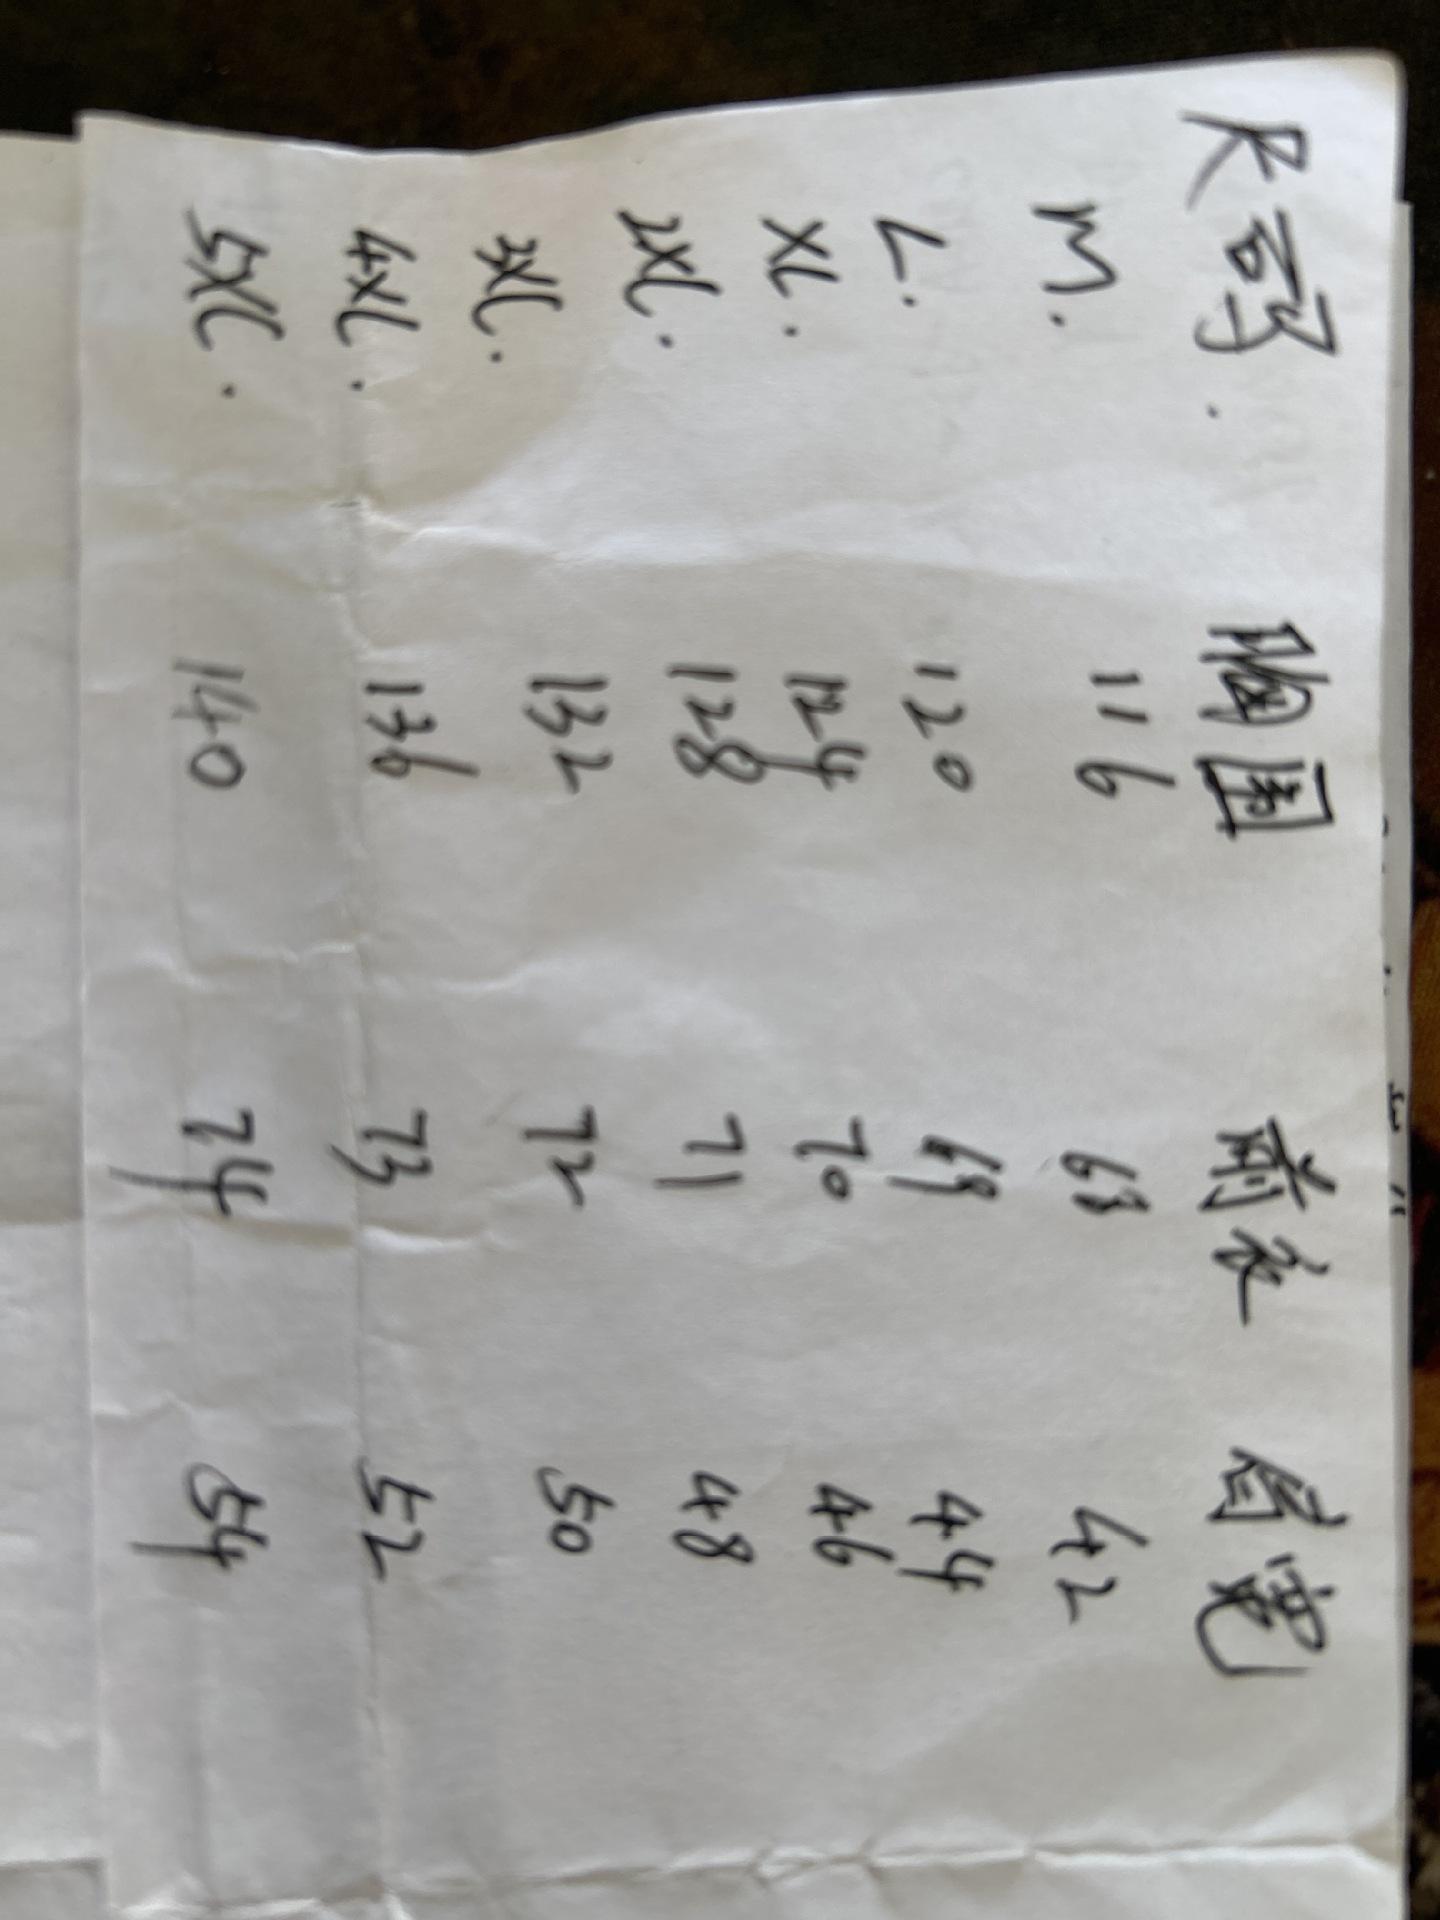 尺码. 胸围 前衣 肩宽
M. 116 68 42
L. 120 69 44
XL. 124 70 46
2XL. 128 71 48
3XL. 132 72 50
4XL. 136 73 52
5XL. 140 74 54